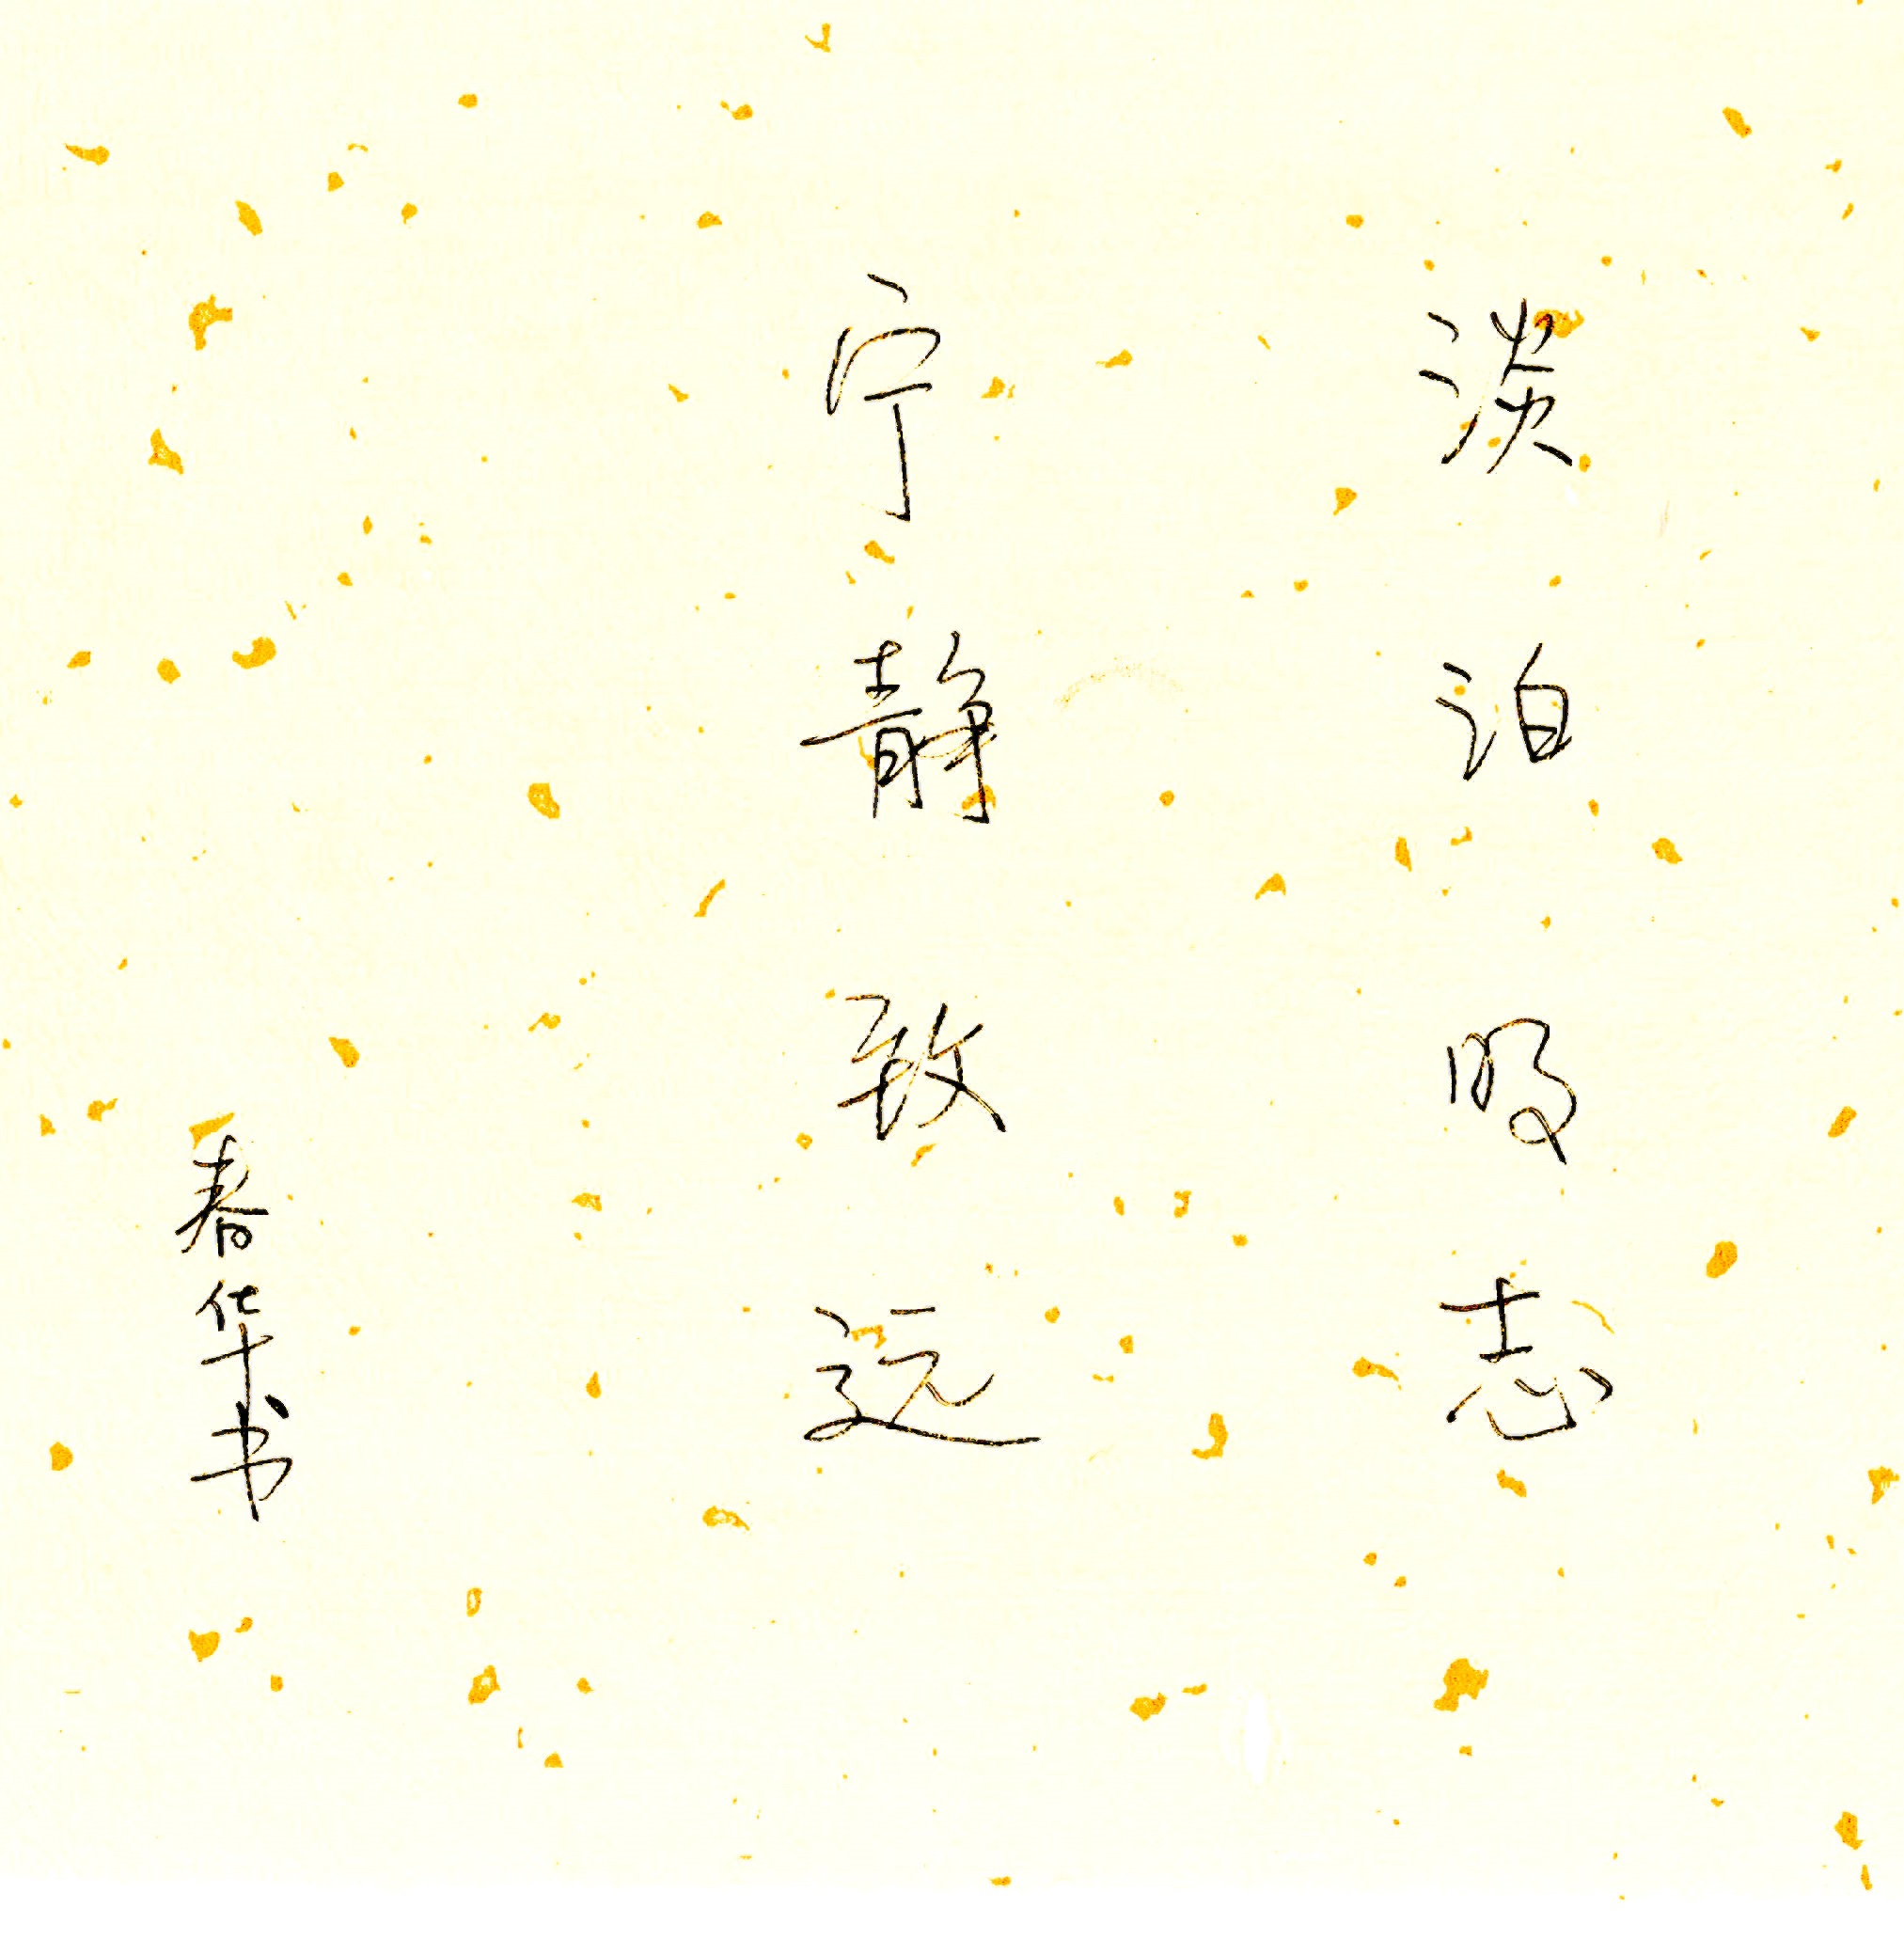 淡泊明志
宁静致远
春华书